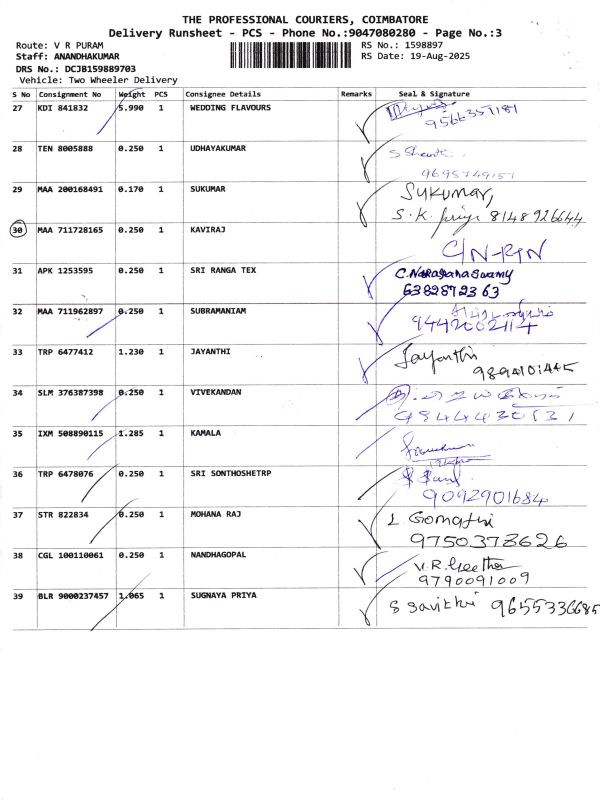 THE PROFESSIONAL COURIERS, COIMBATORE
Delivery Runsheet - PCS - Phone No.:9047080280 - Page No.:3
Route: V R PURAM
RS No.: 1598897
Staff: ANANDHAKUMAR
RS Date: 19-Aug-2025
DRS No.: DCJB159889703
Vehicle: Two Wheeler Delivery
S No Consignment No Weight PCS Consignee Details Remarks Seal & Signature
27 KDI 841832 5.990 1 WEDDING FLAVOURS
9566357181
28 TEN 8005888 0.250 1 UDHAYAKUMAR
9695749151
29 MAA 200168491 0.170 1 SUKUMAR Sukumar,
S.K. priya 8148926644
30 MAA 711728165 0.250 1 KAVIRAJ
C/N-RTN
31 APK 1253595 0.250 1 SRI RANGA TEX C.Narayanaswamy
6382872363
32 MAA 711962897 0.250 1 SUBRAMANIAM
9442002114
33 TRP 6477412 1.230 1 JAYANTHI Jayanthi
9894101445
34 SLM 376387398 0.250 1 VIVEKANDAN
35 IXM 508890115 1.285 1 KAMALA
36 TRP 6478076 0.250 1 SRI SONTHOSHETRP
9092901684
37 STR 822834 0.250 1 MOHANA RAJ L Gomathi
9750378626
38 CGL 100110061 0.250 1 NANDHAGOPAL V.R.Geetha
9790091009
39 BLR 9000237457 1.065 1 SUGNAYA PRIYA S Savithri 9655336685